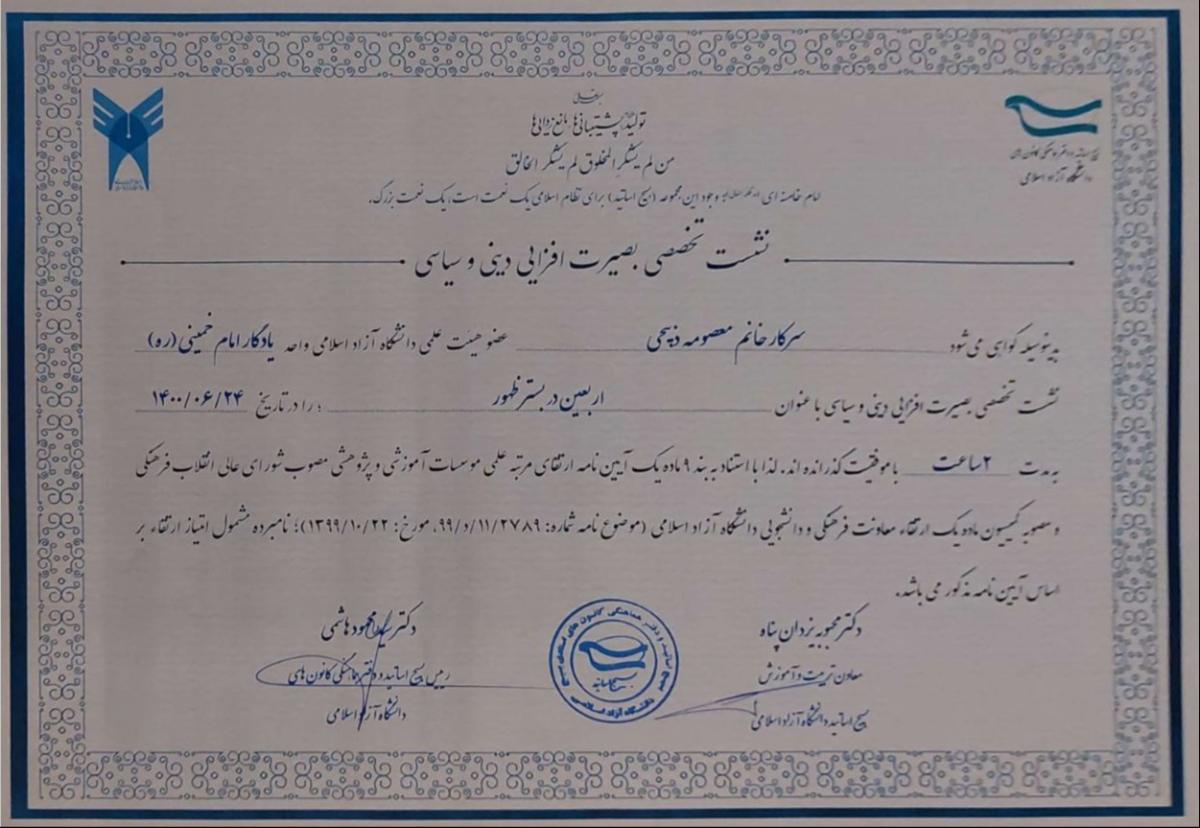 بسمه‌تعالی
تولید؛ پشتیبانی‌ها، مانع‌زدایی‌ها
من لم یشکر المخلوق لم یشکر الخالق
امام خامنه ای وجود این مجموعه (بسیج اساتید) برای نظام اسلامی یک نعمت است، یک نعمت بزرگ.
دانشگاه آزاد اسلامی
نشست تخصصی بصیرت افزایی دینی و سیاسی
بدینوسیله گواهی می شود سرکار خانم معصومه ذبیحی عضو هیئت علمی دانشگاه آزاد اسلامی واحد یادگار امام خمینی (ره)
نشست تخصصی بصیرت افزایی دینی و سیاسی با عنوان اربعین در بستر ظهور ؛ را در تاریخ ۱۴۰۰/۰۶/۲۴
به مدت ۲ساعت با موفقیت گذرانده اند. لذا با استناد به بند ۹ ماده یک آیین نامه ارتقای مرتبه علمی موسسات آموزشی و پژوهشی مصوب شورای عالی انقلاب فرهنگی
و مصوبه کمیسیون ماده یک ارتقاء معاونت فرهنگی و دانشجویی دانشگاه آزاد اسلامی (موضوع نامه شماره: ۹۹/د/۱۱/۲۷۸۹، مورخ: ۱۳۹۹/۱۰/۲۲)؛ نامبرده مشمول امتیاز ارتقاء بر
اساس آیین نامه مذکور می باشد.
دکتر محبوبه یزدان پناه
معاون تربیت و آموزش
بسیج اساتید دانشگاه آزاد اسلامی
بسیج اساتید
دانشگاه آزاد اسلامی
دکتر سید محمود هاشمی
رییس بسیج اساتید و دفتر هماهنگی کانون های
دانشگاه آزاد اسلامی